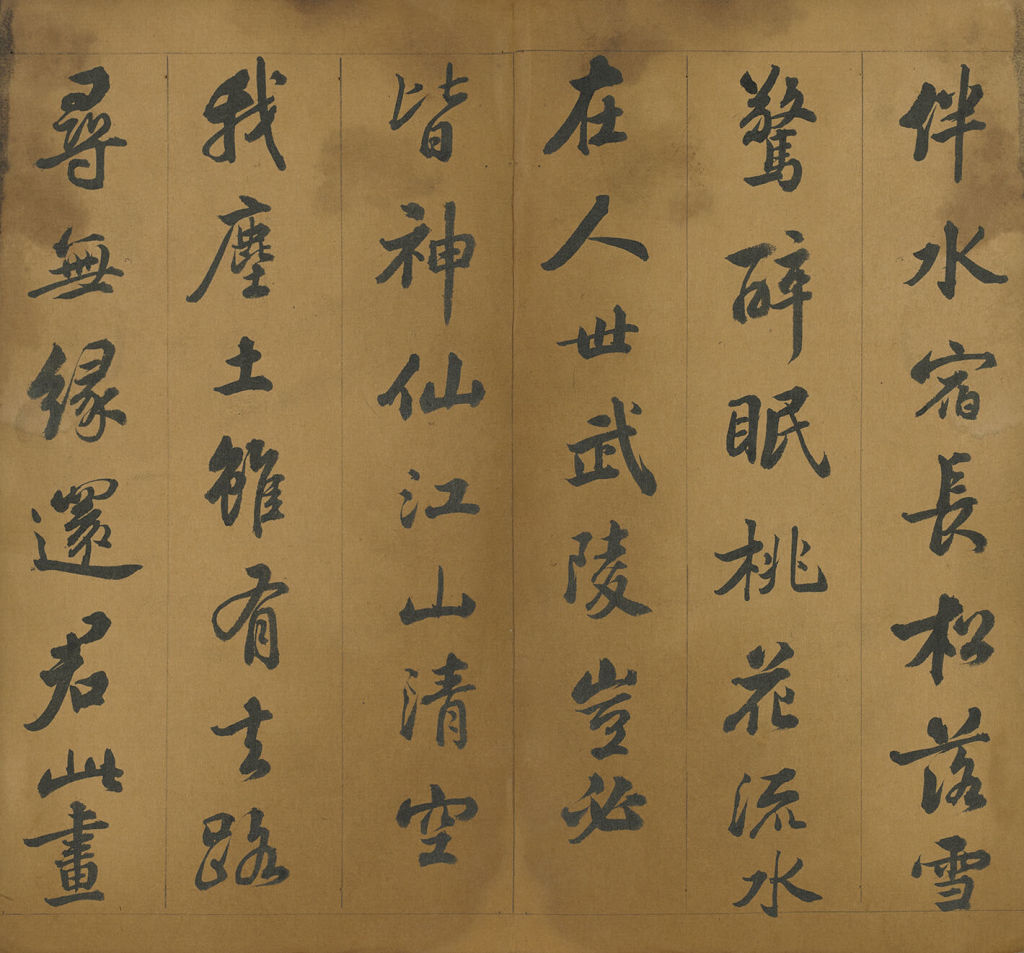 伴水宿長松落雪
驚醉眠桃花流水
在人世武陵豈必
皆神仙江山清空
我塵土雖有去路
尋無緣還君此畫